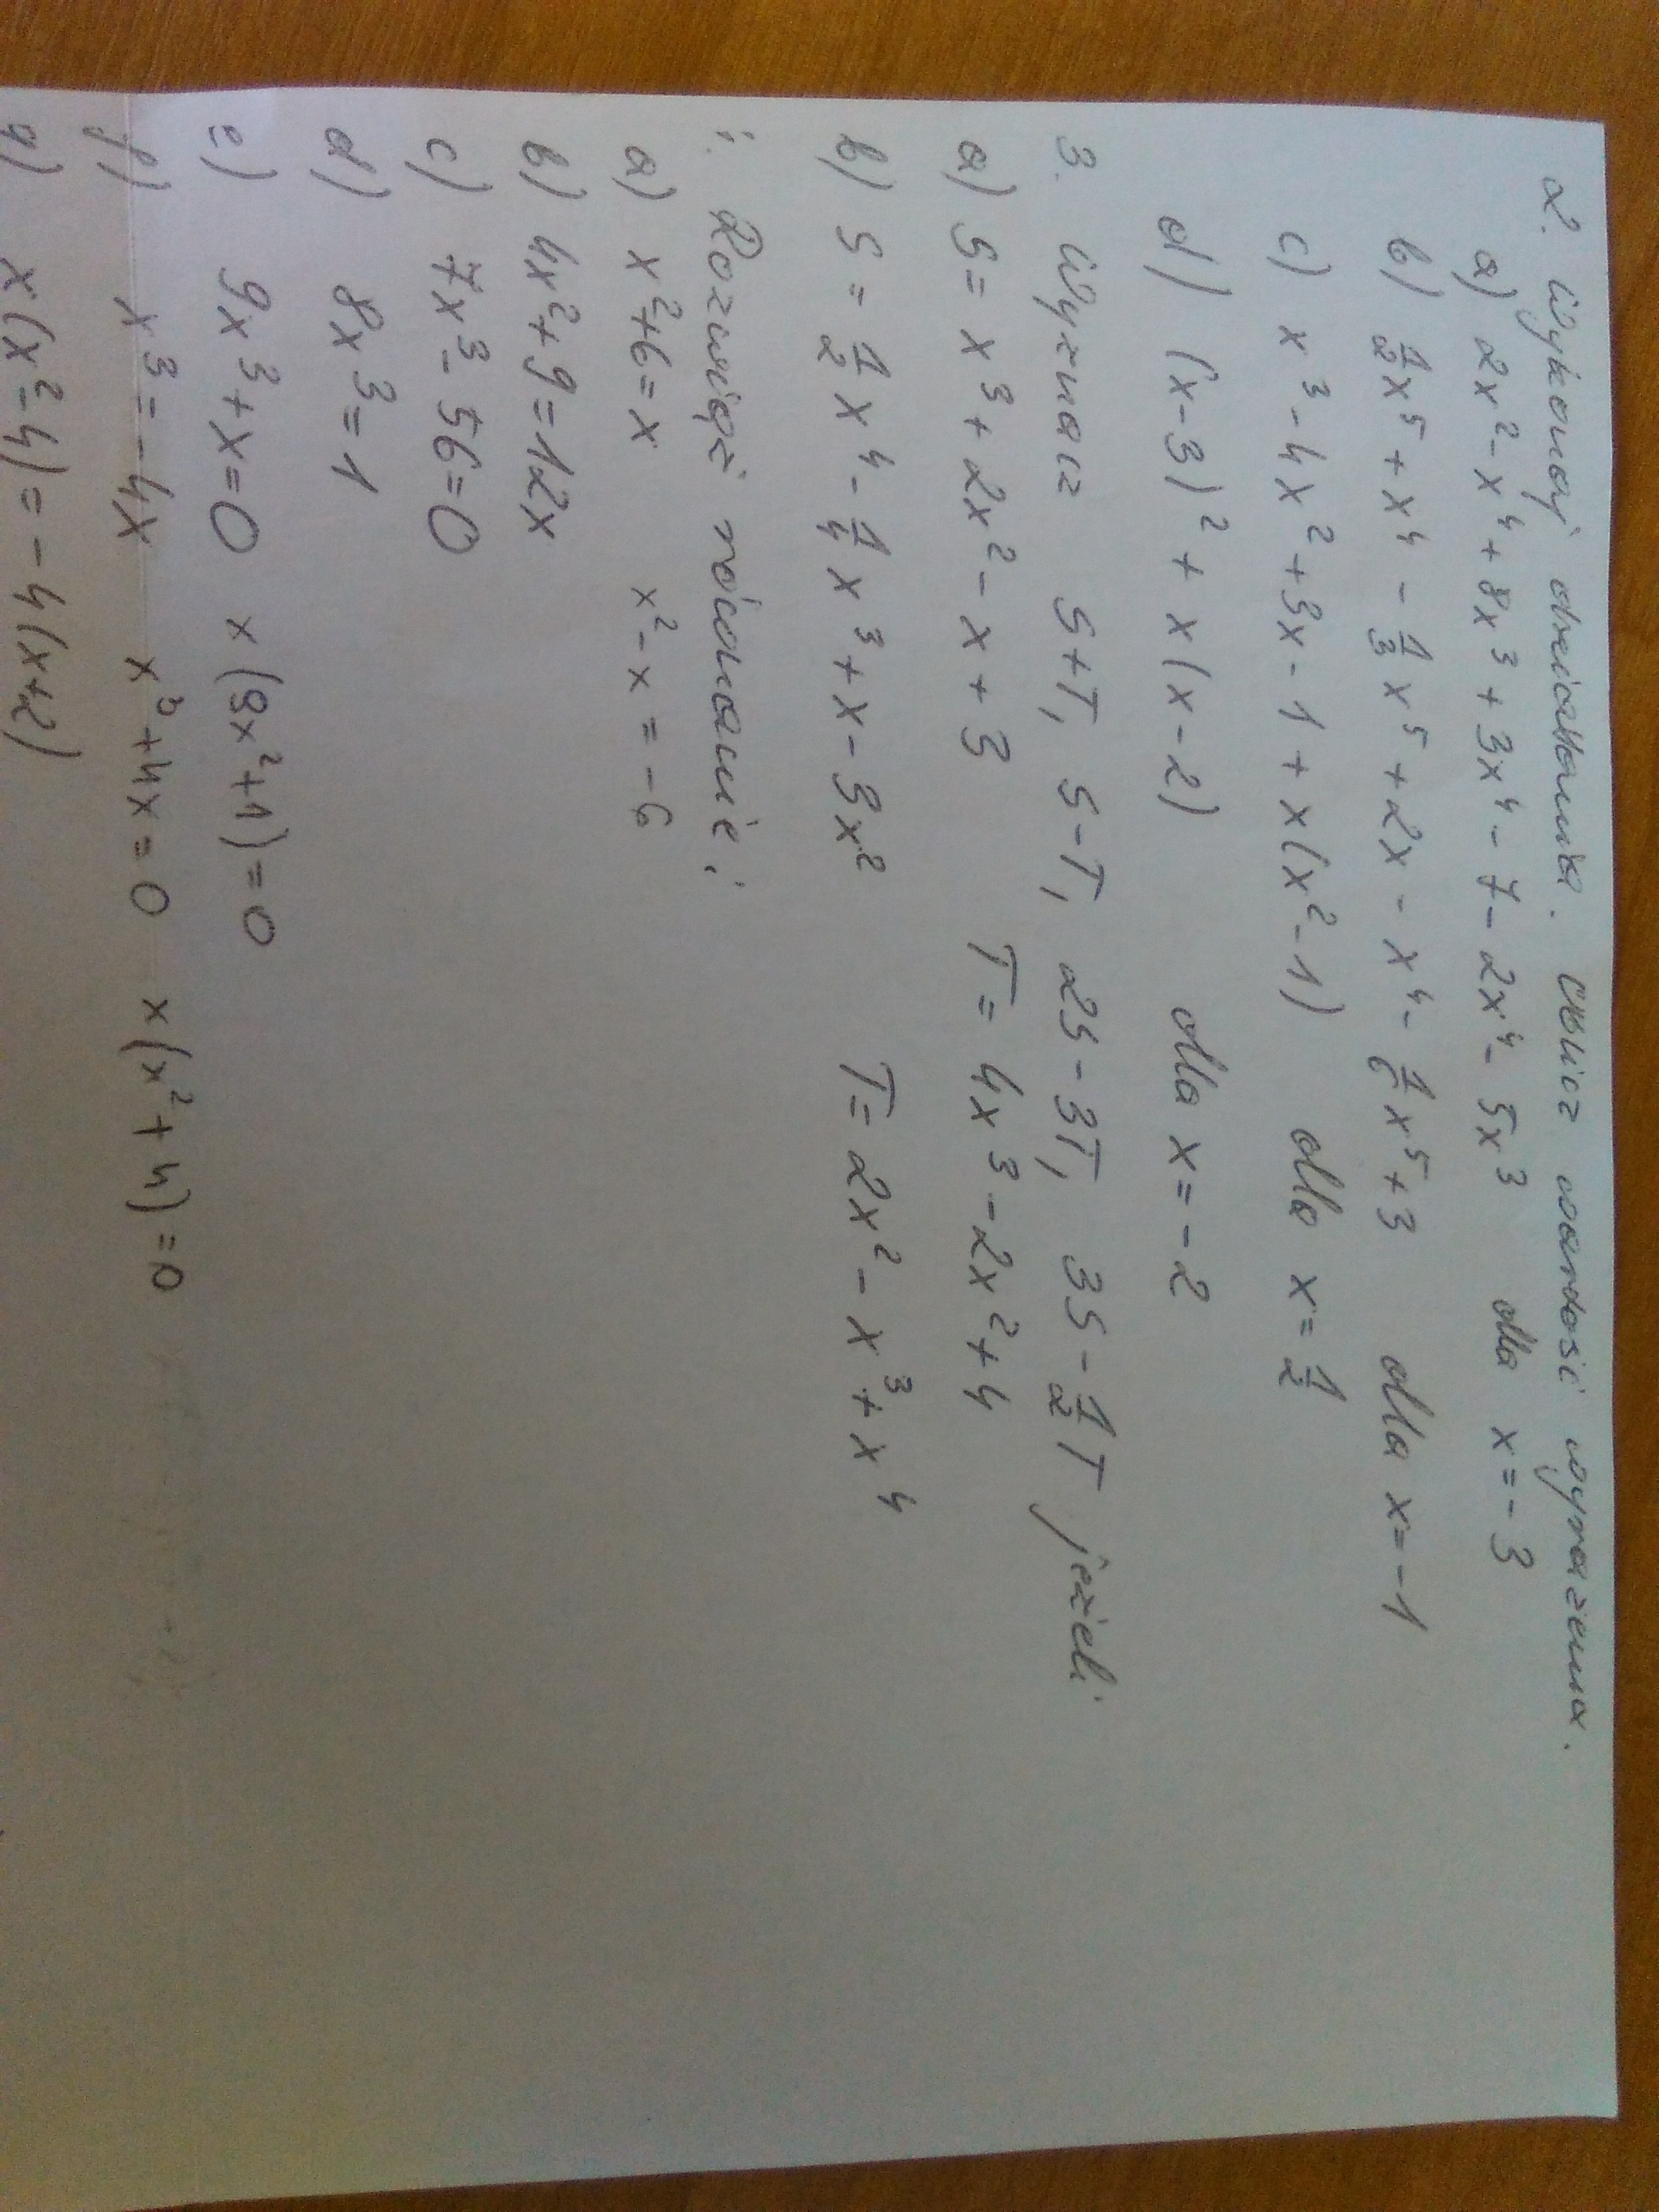 2. Wykonaj działania. Oblicz wartość wyrażenia.
a) 2x² - x⁴ + 8x³ + 3x⁴ - 7 - 2x⁴ - 5x³ dla x = -3
b) ½x⁵ + x⁴ - ⅓x⁵ + 2x - x⁴ - ⅙x⁵ + 3 dla x = -1
c) x³ - 4x² + 3x - 1 + x(x² - 1) dla x = ½
d) (x-3)² + x(x-2) dla x = -2
3. Wyznacz S+T, S-T, 2S-3T, 3S-½T jeżeli
a) S = x³ + 2x² - x + 3 T = 4x³ - 2x² + 4
b) S = ½x⁴ - ¼x³ + x - 3x² T = 2x² - x³ + x⁴
Rozwiąż równanie:
a) x² + 6 = x x² - x = -6
b) 4x² + 9 = 12x
c) 7x³ - 56 = 0
d) 8x³ = 1
e) 9x³ + x = 0 x(9x² + 1) = 0
f) x³ = -4x x³ + 4x = 0 x(x² + 4) = 0
g) x(x² - 4) = -4(x+2)